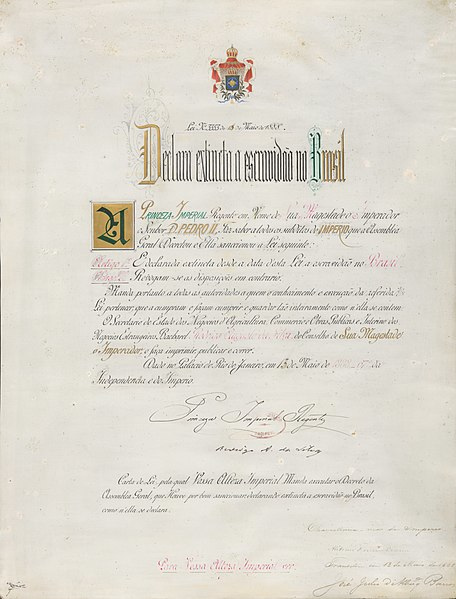 Lei N. 3353 de 13 de Maio de 1888.
Declara extincta a escravidão no Brasil
A PRINCEZA IMPERIAL Regente em Nome de Sua Magestade o Imperador
o Senhor D. PEDRO II, Faz saber a todos os subditos do IMPERIO que a Assembléa
Geral Decretou e Ella sanccionou a Lei seguinte:
Artigo 1º É declarada extincta desde a data desta Lei a escravidão no Brazil.
Artigo 2º Revogam-se as disposições em contrario.
Manda portanto a todas as autoridades a quem o conhecimento e execução da referida
Lei pertencer, que a cumpram e façam cumprir e guardar tão inteiramente como n'ella se contem.
O Secretario de Estado dos Negocios d'Agricultura, Commercio e Obras Publicas e Interino dos
Negocios Estrangeiros, Bacharel Rodrigo Augusto da Silva do Conselho de Sua Magestade
o Imperador, o faça imprimir, publicar e correr.
Dado no Palacio do Rio de Janeiro, em 13 de Maio de 1888, 67º da
Independencia e do Imperio.
Princeza Imperial Regente
Rodrigo A. da Silva
Carta de Lei, pela qual Vossa Alteza Imperial Manda executar o Decreto da
Assembléa Geral, que Houve por bem sanccionar declarando extincta a escravidão no Brasil,
como n'ella se declara.
Para Vossa Alteza Imperial ver.
Chancellaria mór do Imperio
13 de Maio de 1888
José Julio de